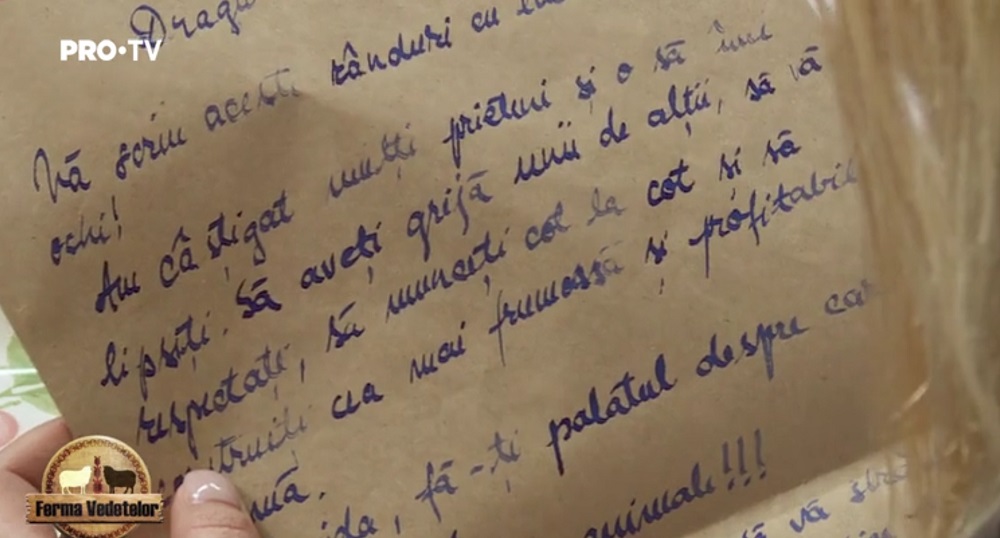 PRO•TV
Dragi
Vă scriu aceste rânduri cu
ochi!
Am câștigat mulți prieteni și o să îmi
lipsiți. Să aveți grijă unii de alții, să vă
respectați, să munciți cot la cot și să
construiți cea mai frumoasă și profitabilă
fă-ți palatul despre care
animale!!!
să vă
Ferma Vedetelor